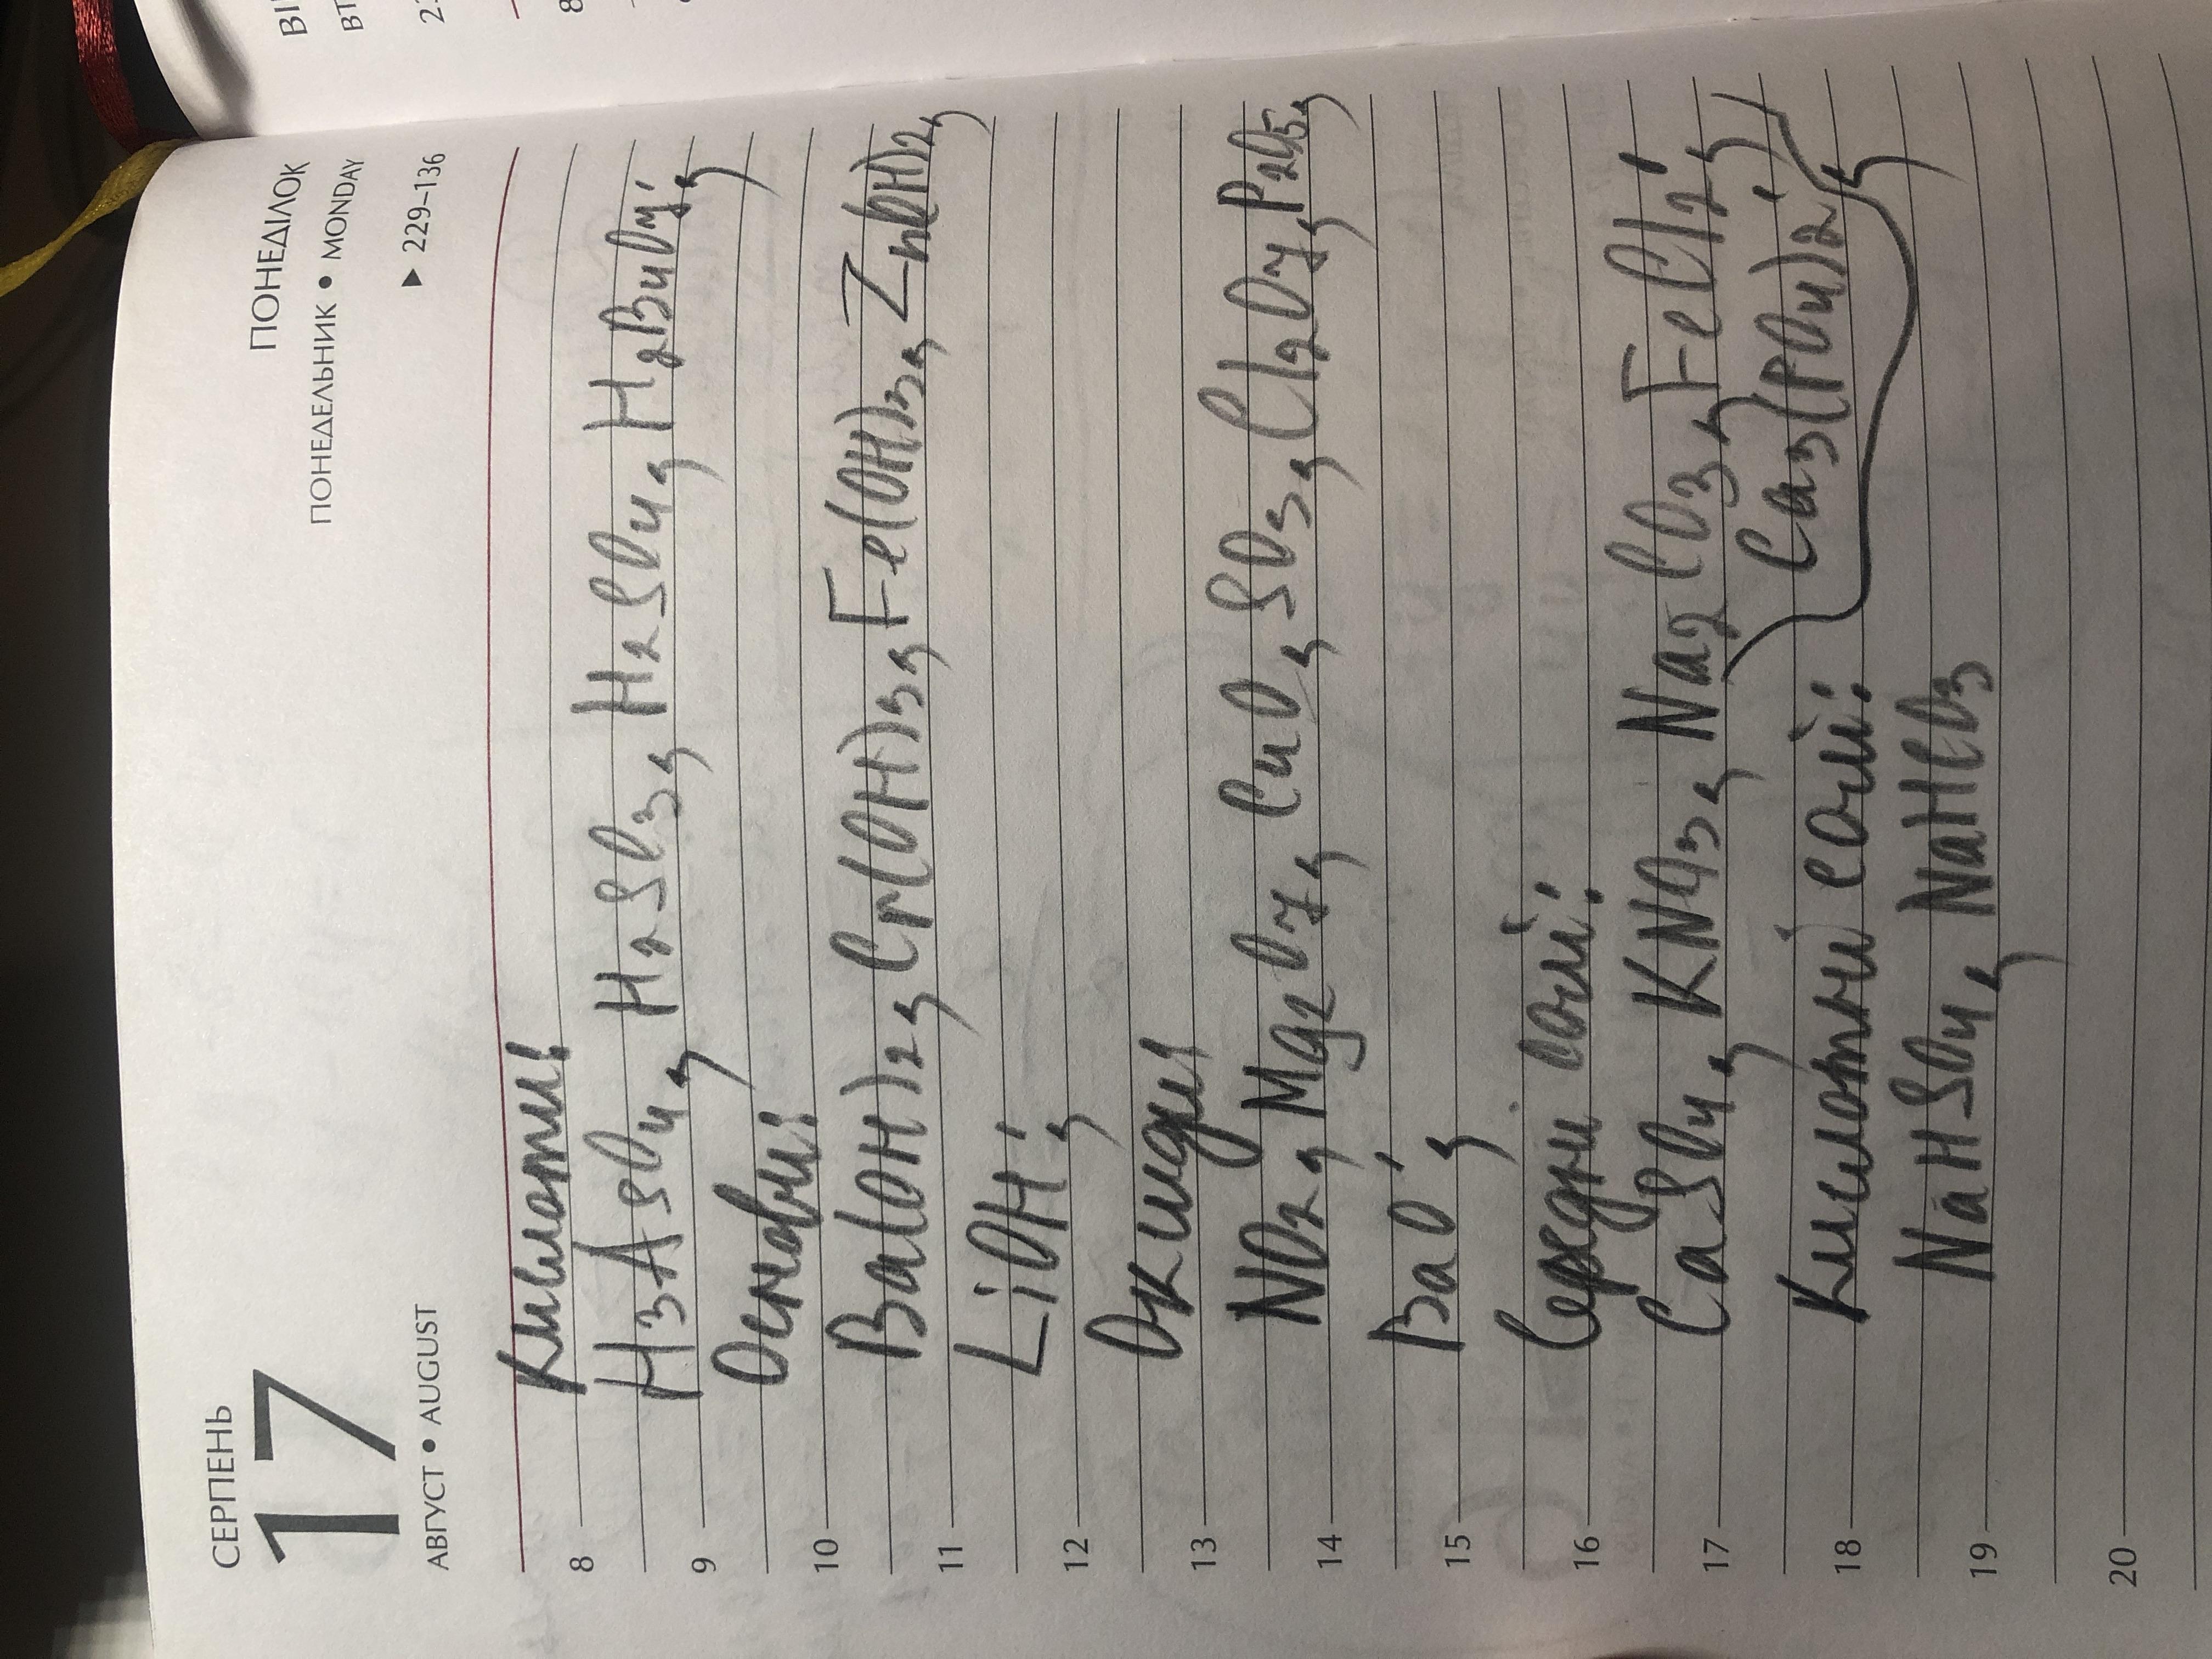 СЕРПЕНЬ
17
АВГУСТ • AUGUST
ПОНЕДІЛОК
ПОНЕДЕЛЬНИК • MONDAY
▶ 229–136
Кислоти:
8
H3AsO4, H2SO3, H2SO4, H2B4O7;
9
Основи:
10
Ba(OH)2, Cr(OH)3, Fe(OH)3, Zn(OH)2,
11
LiOH;
12
Оксиди
13
NO2, Mg2O7, CuO, SO3, Cl2O7, P2O5,
14
BaO;
15
Середні солі:
16
CaSO4, KNO3, Na2CO3, FeCl2;
17
Ca3(PO4)2;
Кислотні солі:
18
NaHSO4, NaHCO3
19
20